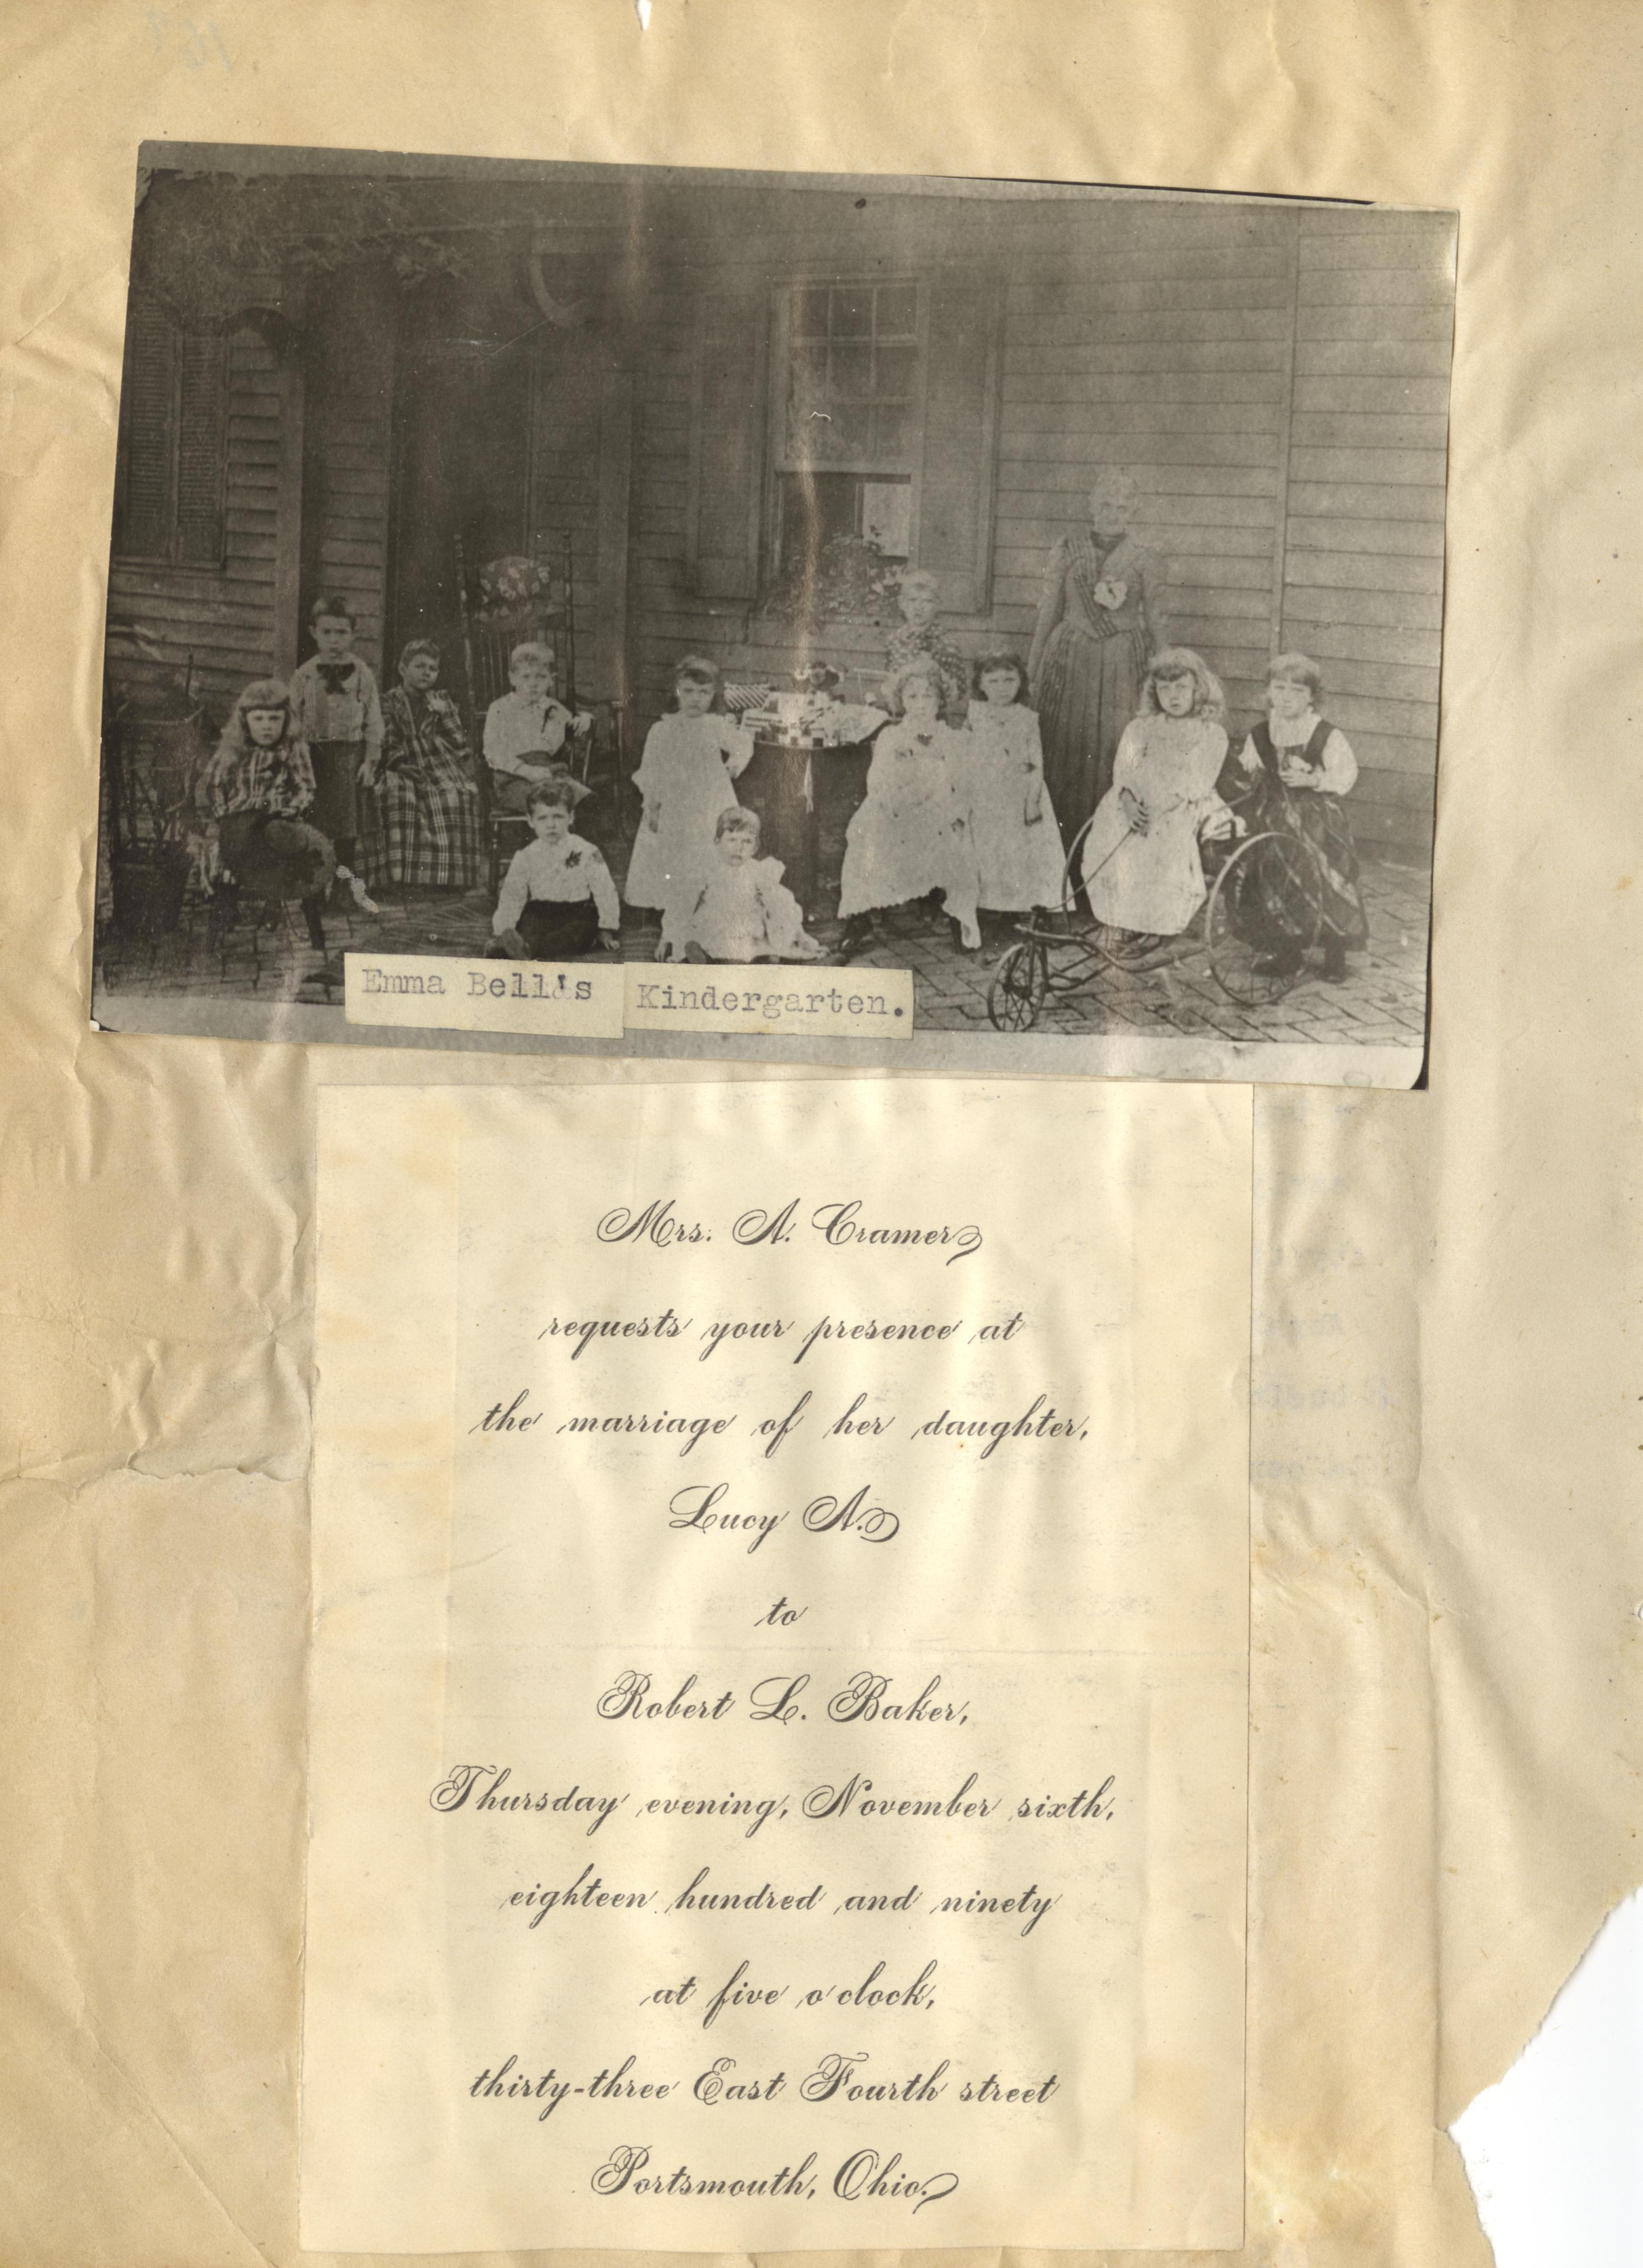 Emma Bell's Kindergarten.
Mrs. A. Cramer
requests your presence at
the marriage of her daughter,
Lucy A.
to
Robert L. Baker,
Thursday evening, November sixth,
eighteen hundred and ninety
at five o'clock,
thirty-three East Fourth street
Portsmouth, Ohio.